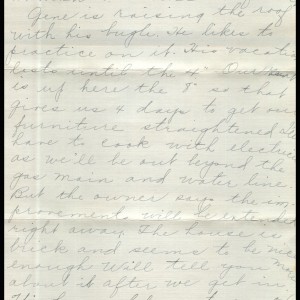 Gene is raising the roof
with his bugle. He likes to
practice on it. His vacation
lasts until the 4" Our
is up here the 8" so that
gives us 4 days to get our
furniture straightened
have to cook with electric
as we'll be out beyond the
gas main and water line.
But the owner says the im-
provements will be extended
right away. The house is
brick and seems to be nice
enough Will tell you more
about it after we get in.